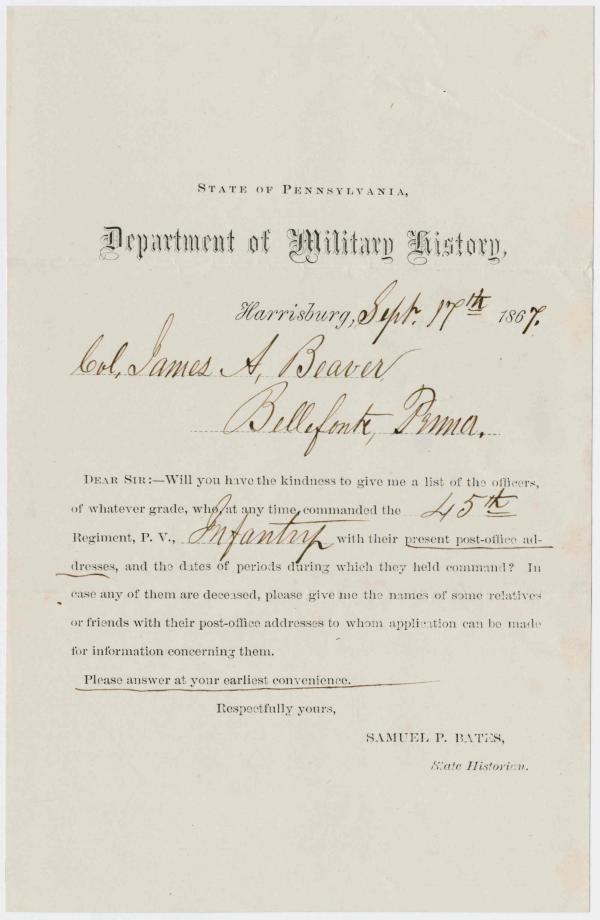 STATE OF PENNSYLVANIA,
Department of Military History,
Harrisburg, Sept. 17th 1867.
Col. James A. Beaver
Bellefonte, Penna.
DEAR SIR:—Will you have the kindness to give me a list of the officers,
of whatever grade, who at any time commanded the 45th
Regiment, P. V., Infantry with their present post-office ad-
dresses, and the dates of periods during which they held command? In
case any of them are deceased, please give me the names of some relatives
or friends with their post-office addresses to whom application can be made
for information concerning them.
Please answer at your earliest convenience.
Respectfully yours,
SAMUEL P. BATES,
State Historian.